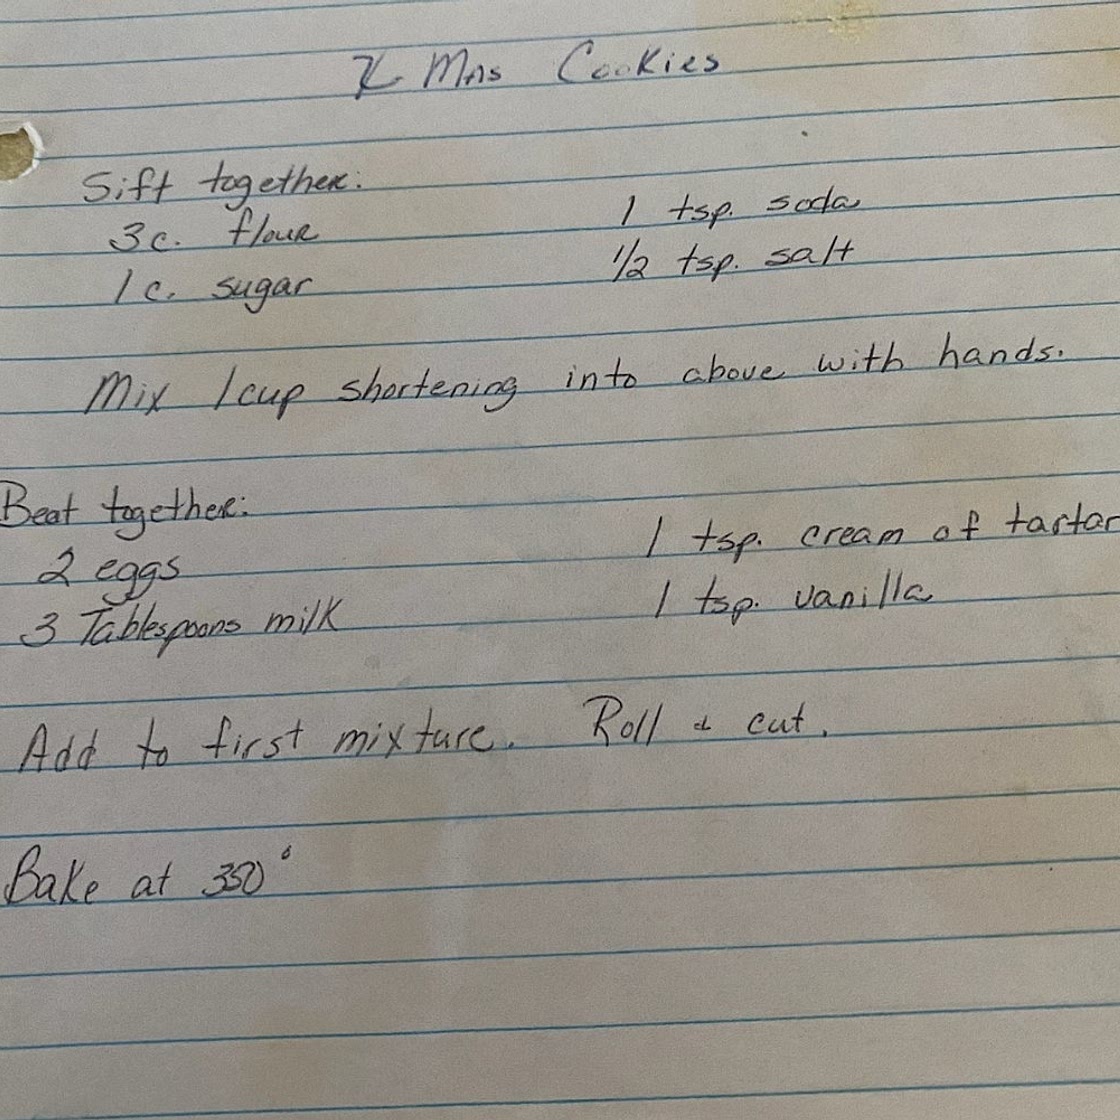 X Mas Cookies
Sift together:
3 c. flour 1 tsp. soda
1 c. sugar 1/2 tsp. salt
Mix 1 cup shortening into above with hands.
Beat together:
2 eggs 1 tsp. cream of tartar
3 Tablespoons milk 1 tsp. vanilla
Add to first mixture. Roll & cut.
Bake at 350°